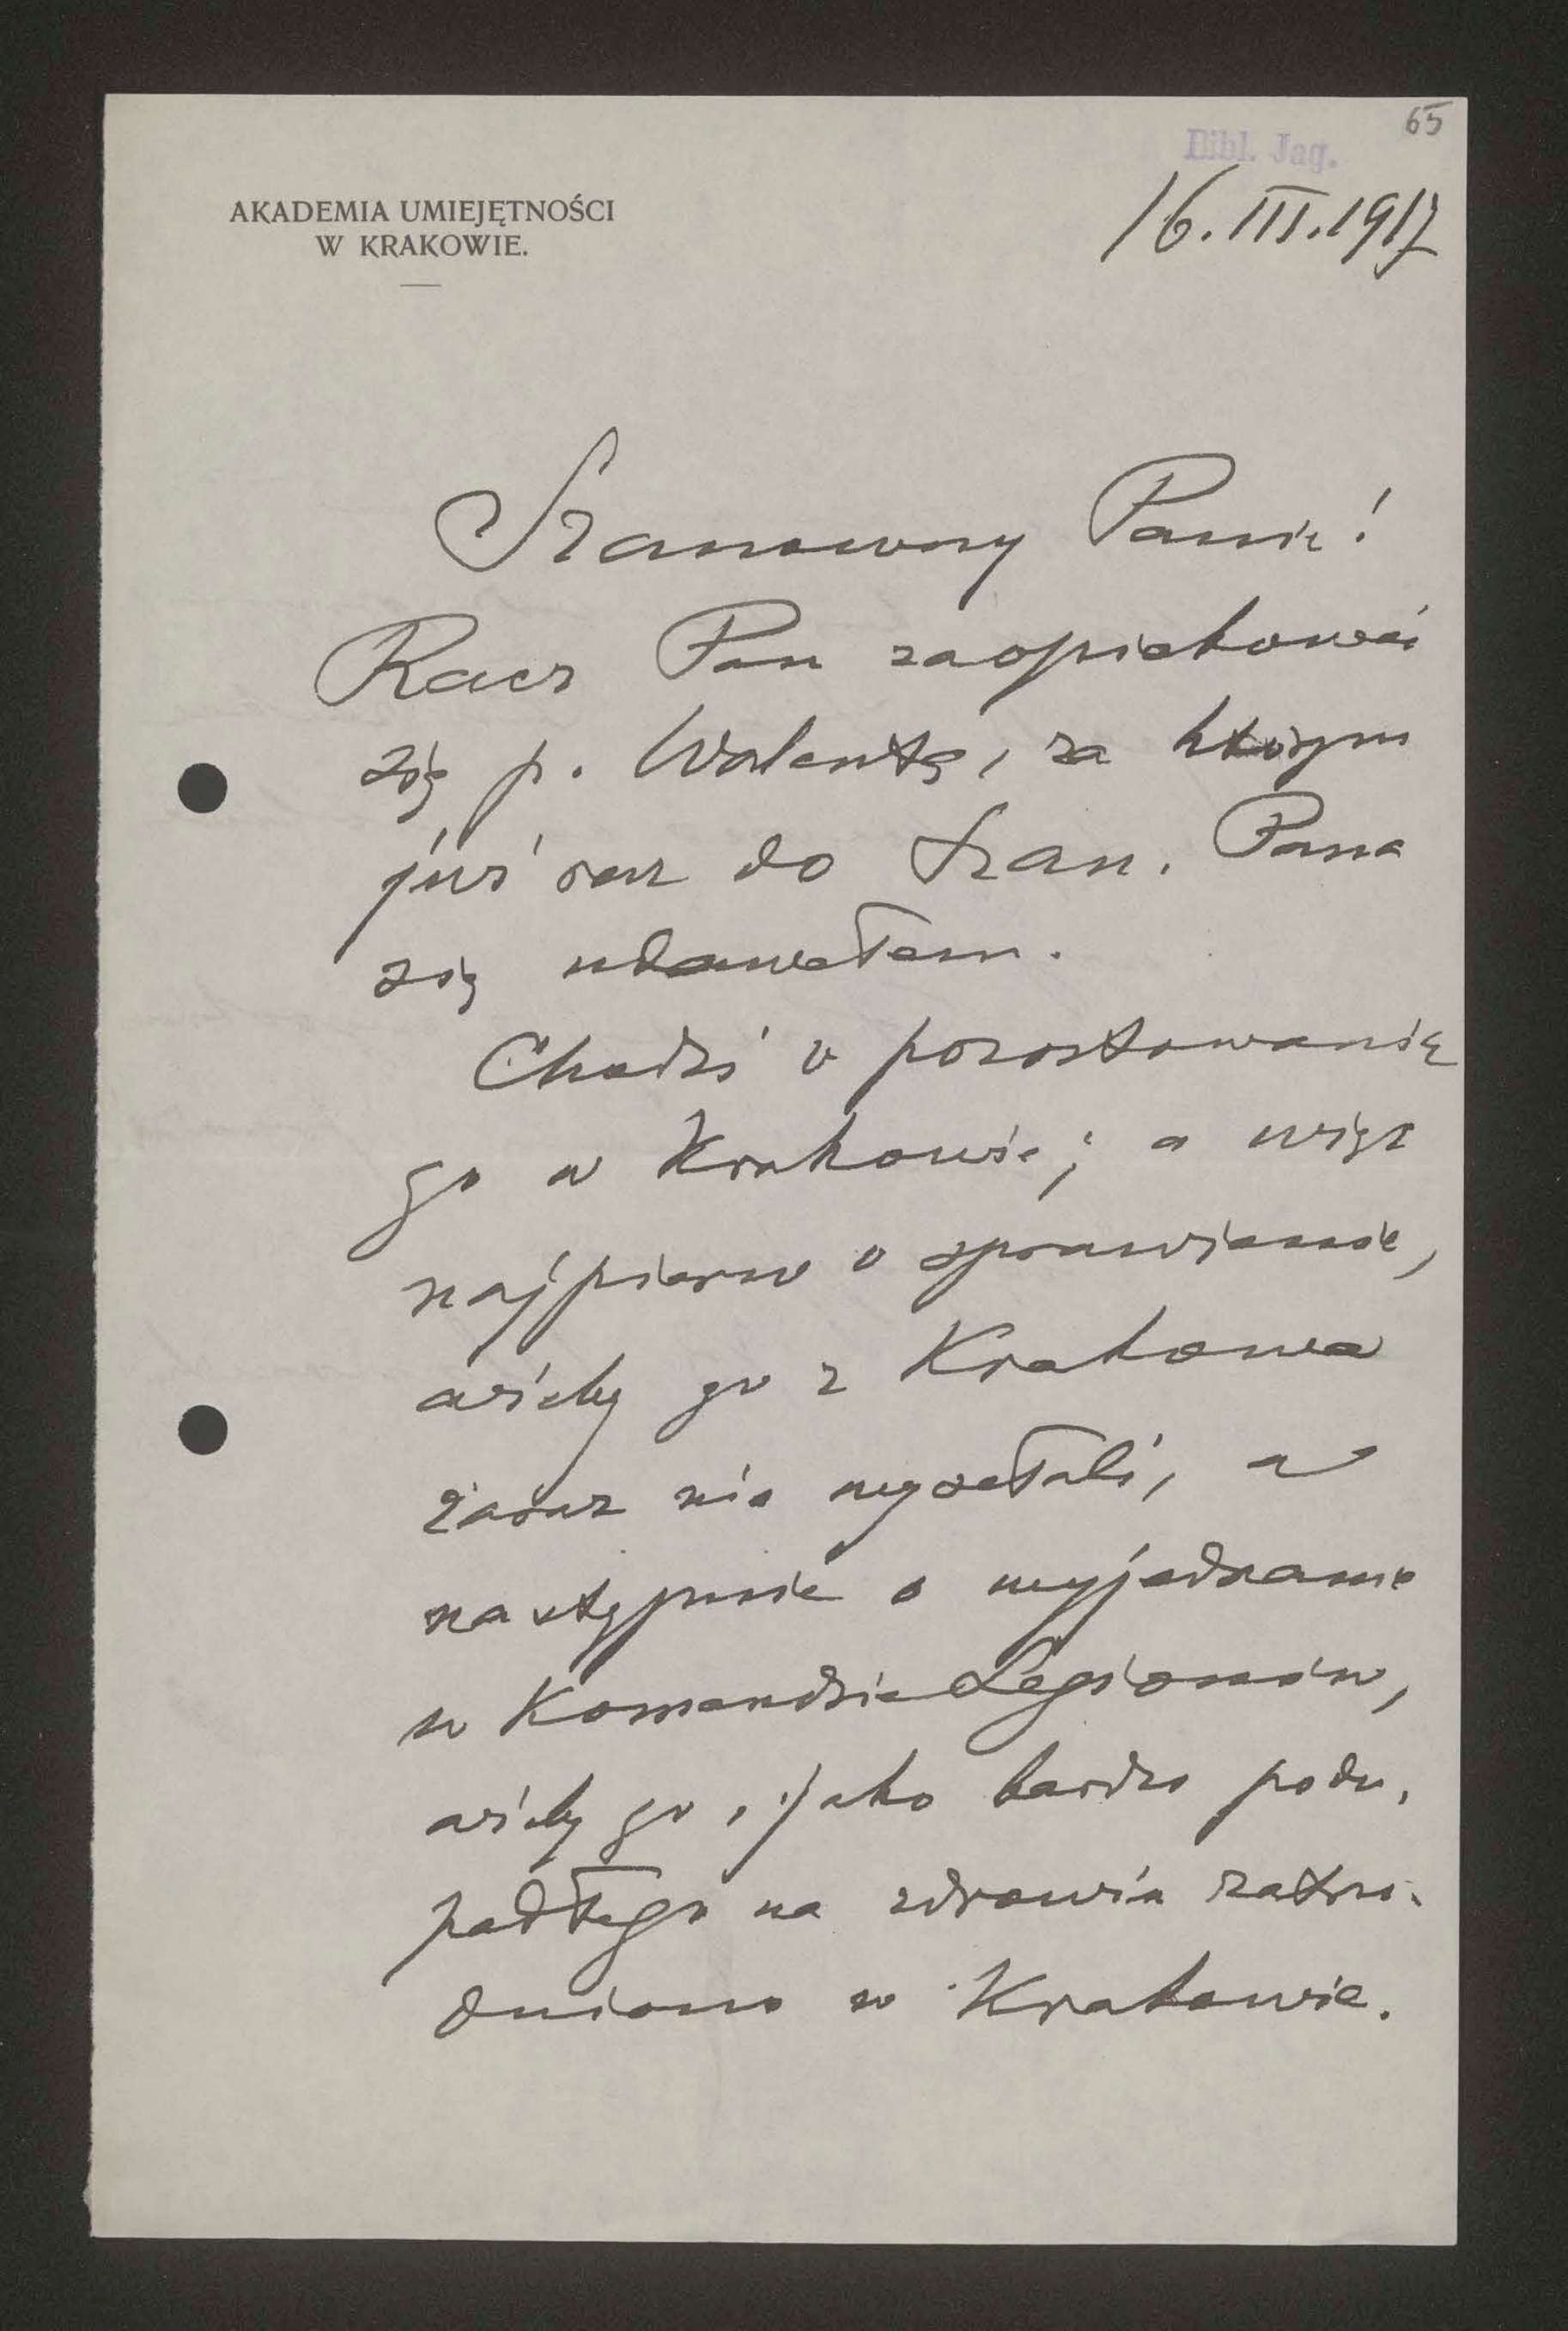 65
Bibl. Jag.
AKADEMIA UMIEJĘTNOŚCI
W KRAKOWIE.
16. III. 1917
Szanowny Panie!
Racz Pan zaopiekować
się p. Walentą, za którym
już raz do Szan. Pana
się udawałem.
Chodzi o pozostawanie
go w Krakowie; a więc
najpierw o sprawienie,
ażeby go z Krakowa
zaraz nie wysłali, a
następnie o wyjednanie
w Komendzie Legionów,
ażeby go, jako bardzo podu-
padłego na zdrowiu zatru-
dniono w Krakowie.